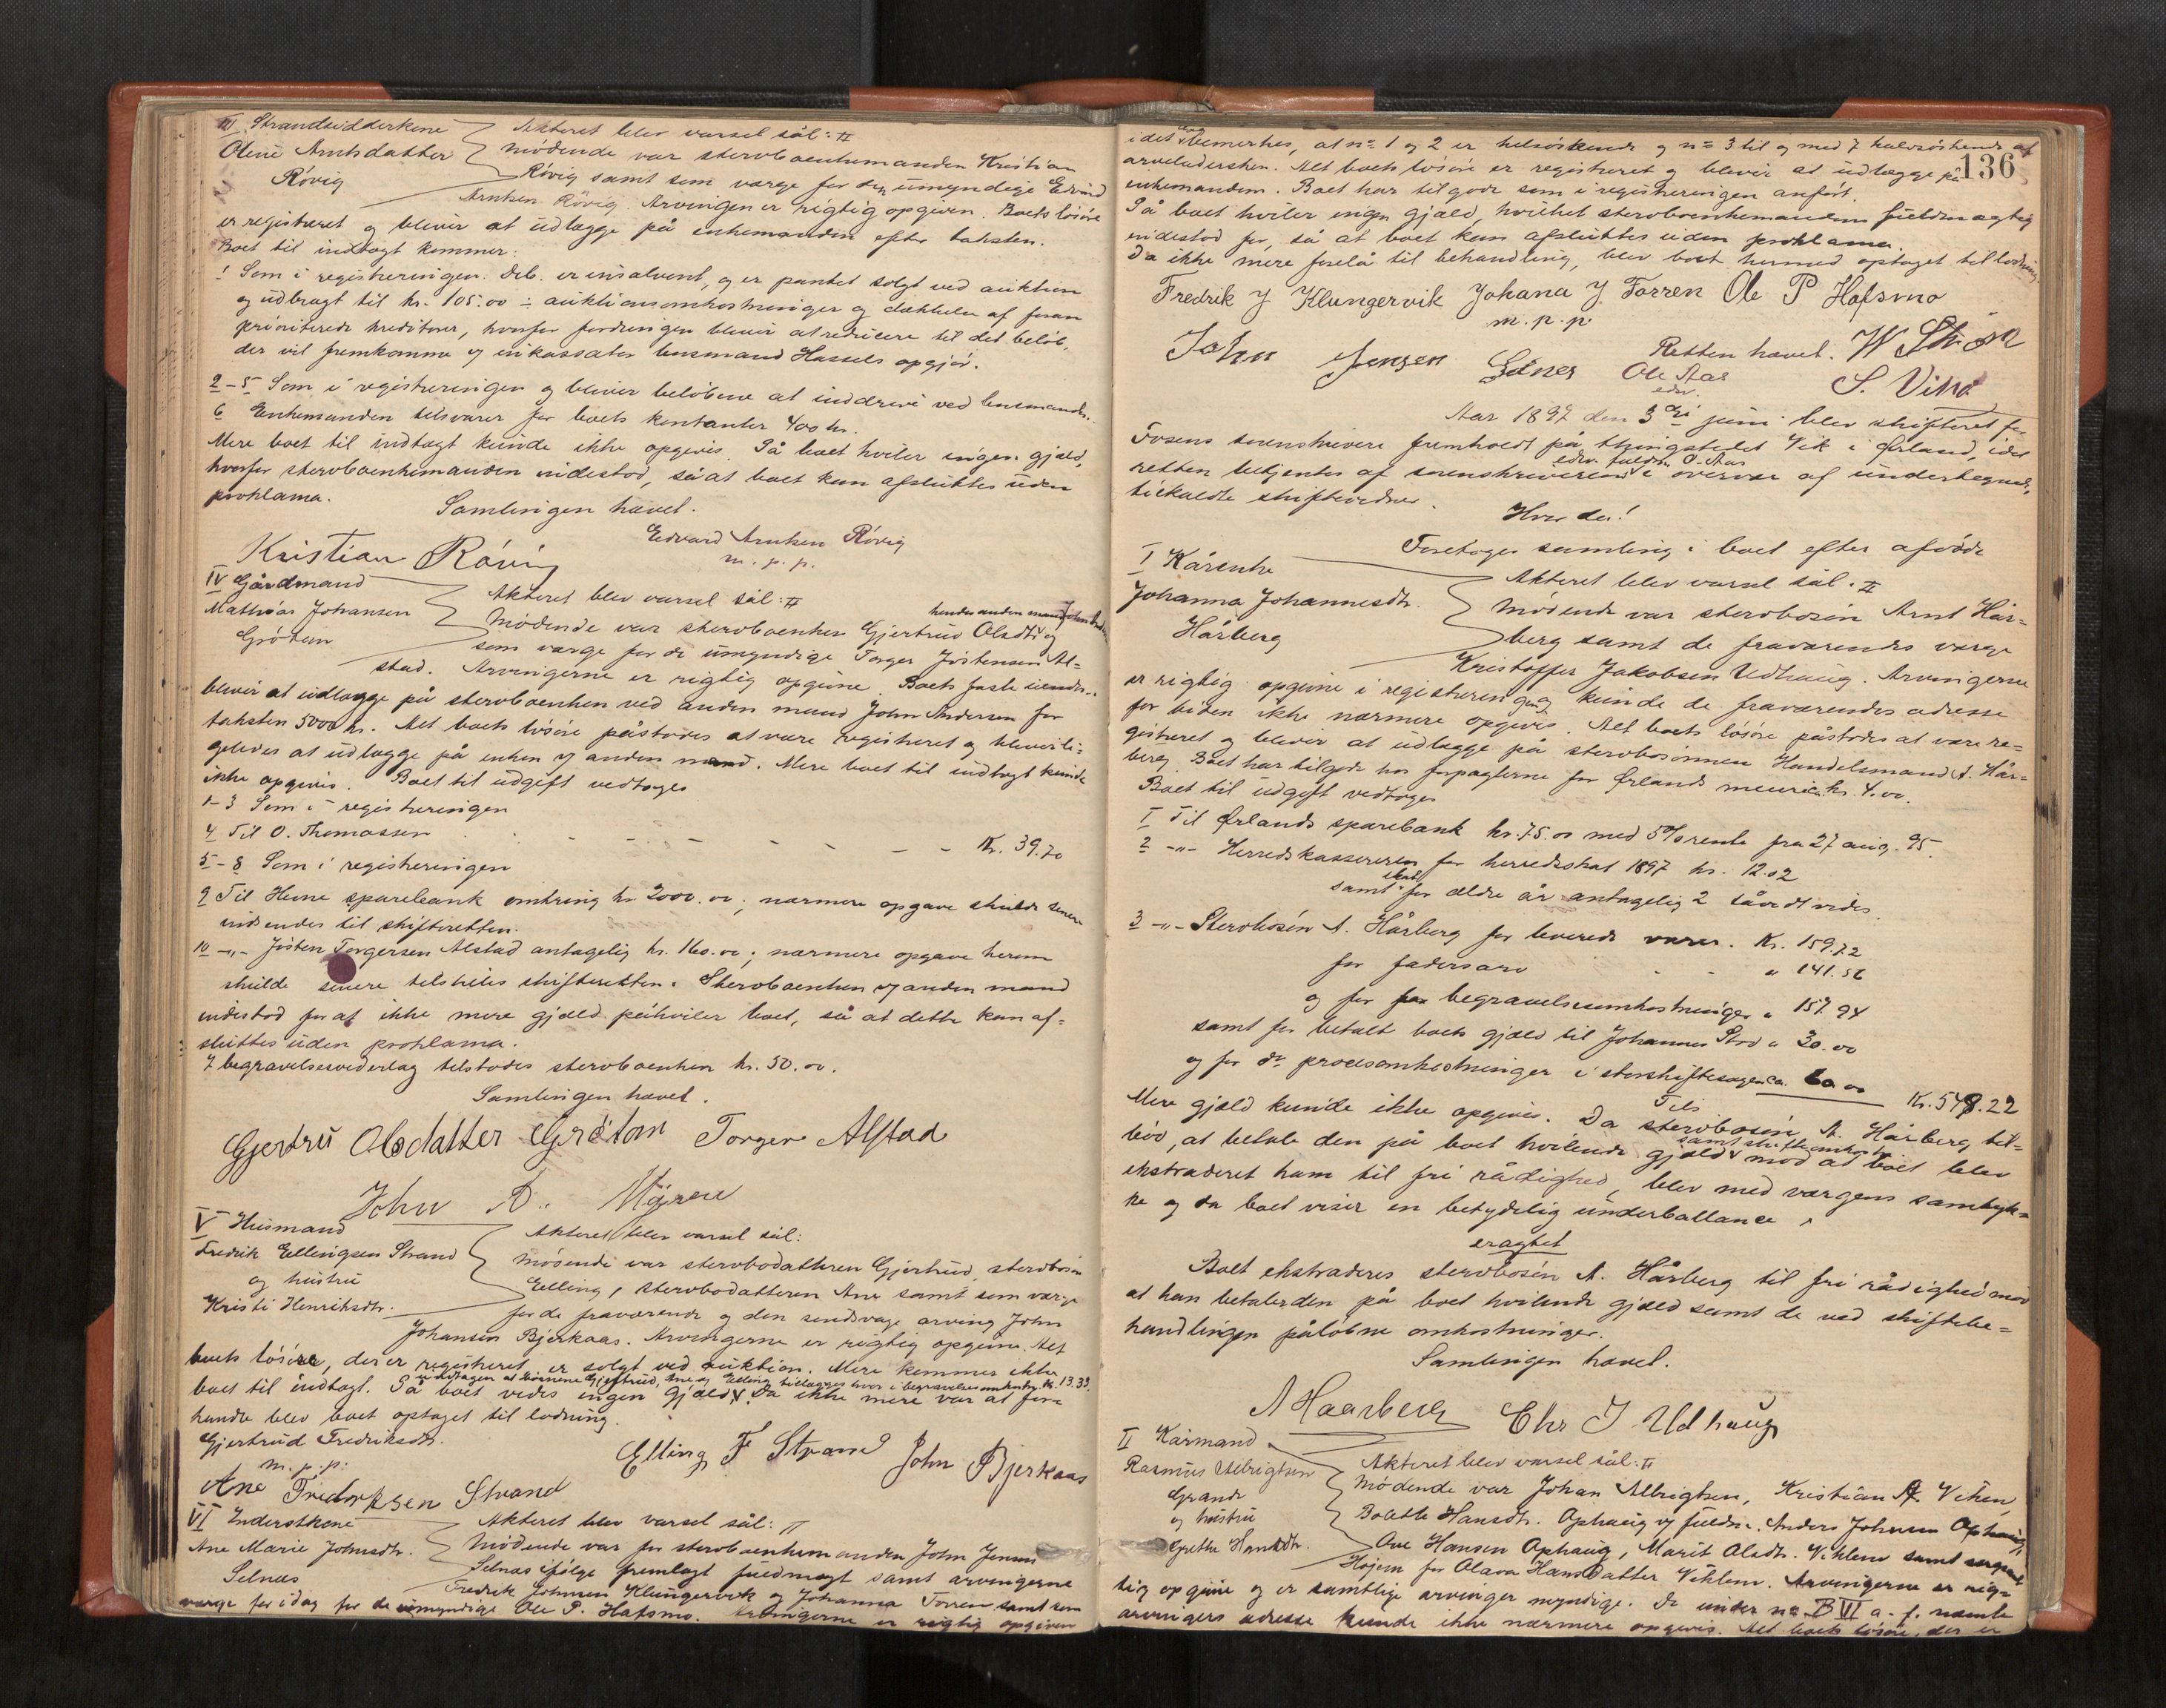 III Strandsidderkone
Oline Arntsdatter
Rövig
Akteret blev varsel sål:
Mödende var stervboenkemanden Kristian
Rövig samt som værge for den umyndige Edvard
Arntsen Rövig. Arvingen er rigtig opgiven. Boets lösöre
er registreret og bliver at udlægge på enkemanden efter taksten.
Boet til indtægt kommer:
1 Som i registreringen. Deb. er insolvent, og er pantet solgt ved auktion
og udbragt til kr. 105.00 ÷ auktionsomkostninger og dækkelse af foran
prioriterede kreditorer, hvorfor fordringen bliver at reducere til det belöb,
der vil fremkomme ved inkassator lensmand Hassels opgjör.
2-5 Som i registreringen og bliver belöbene at inddrive ved lensmanden.
6 Enkemanden tilsvarer for boets kontanter 400 kr.
Mere boet til indtægt kunde ikke opgives. På boet hviler ingen gjæld,
hvorfor stervboenkemanden indestod, så at boet kan afsluttes uden
proklama.
Samlingen hævet.
Kristian Rövig
Edvard Arntsen Rövig
m. p. p.
IV Gårdmand
Mathias Johansen
Gröten
Akteret blev varsel sål:
Mödende var stervboenken Gjertrud Olsdtr og
hendes anden mand John
som værge for de umyndige Torger Jöstensen Al=
stad. Arvingerne er rigtig opgivne. Boets faste eiendom
bliver at udlægge på stervboenken ved anden mand John Andersen for
taksten 5000 kr. Alt boets lösöre påstodes at være registreret og bliver li=
geledes at udlægge på enken ved anden mand. Mere boet til indtægt kunde
ikke opgives. Boet til udgift vedtoges
1-3 Som i registreringen
4 Til O. Thomassen - - - - - - Kr. 39.70
5-8 Som i registreringen
9 Til Hevne sparebank omkring kr 2000.00; nærmere opgave skulde senere
indsendes til skifteretten.
10 -"- Jösten Torgersen Alstad antagelig kr. 160.00; nærmere opgave herom
skulde senere tilstilles skifteretten. Stervboenken ved anden mand
indestod for at ikke mere gjæld påhviler boet, så at dette kan af=
sluttes uden proklama.
I begravelsesvederlag tilstodes stervboenken kr. 50.00.
Samlingen hævet.
Gjertru Olsdatter Gröten Torger Alstad
John A. Mören
V Husmand
Fredrik Ellingsen Strand
og hustru
Kristi Henriksdtr.
Akteret blev varsel sål:
Mödende var stervbodatteren Gjertrud, stervbosön
Elling, stervbodatteren Ane samt som værge
for de fraværende og den sindssvage arving John
Johansen Bjerkaas. Arvingerne er rigtig opgivne. Alt
boets lösöre, der er registreret, er solgt ved auktion. Mere kommer ikke
undtagen at börnene Gjertrud, Ane og Elling tillægges hver i begravelsesomkostn. kr. 13.33.
boet til indtægt. På boet vides ingen gjæld. Da ikke mere var at for=
handle blev boet optaget til lodning.
Gjertrud Fredriksdtr.
m. p. p.
Elling F Strand John Bjerkaas
Ane Fredriksen Strand
VI Inderstkone
Ane Marie Johnsdtr.
Selnæs
Akteret blev varsel sål:
Mödende var for stervboenkemanden John Jensen
Selnæs ifölge fremlagt fuldmagt samt arvingerne
Fredrik Johnsen Klungervik og Johanna Torren samt som
værge for idag for de umyndige Ole P. Hafsmo. Arvingerne er rigtig opgiven
136
idet bemerkes, at nº 1 og 2 er helsöskende og nº 3 til og med 7 halvsöskende af
arveladersken. Alt boets lösöre er registreret og bliver at udlægge på
enkemanden. Boet har tilgode som i registreringen anfört.
På boet hviler ingen gjæld, hvilket stervboenkemandens fuldmægtig
indestod for, så at boet kan afsluttes uden proklama.
Da ikke mere forelå til behandling, blev boet hermed optaget til lodning.
Fredrik J Klungervik Johana J Torren Ole P Hafsmo
m. p. p.
Retten hævet.
John Jensen Selnes Ole Aas
edv.
Aar 1897 den 3die juni blev skifteret for
Fosens sorenskriveri fremholdt på thingstedet Vik i Ørland, idet
edv. fuldm. O. Aas
retten betjentes af sorenskriveren i overvær af undertegnede,
tilkaldte skiftevidner.
Hvorda!
Foretoges samling i boet efter afdöde
I Kårenke
Johanna Johannesdtr.
Hårberg
Akteret blev varsel sål.
Mödende var stervbosön Arnt Hår=
berg samt de fraværendes værge
Kristoffer Jakobsen Udhaug. Arvingerne
er rigtig opgivne i registreringen og kunde de fraværendes adresse
for tiden ikke nærmere opgives. Alt boets lösöre påstodes at være re=
gistreret og bliver at udlægge på stervbosönnen Handelsmand A. Hår=
berg. Boet har tilgode hos forpagterne for Ørlands meieri kr. 4.00.
Boet til udgift vedtoges
1 Til Ørlands sparebank kr. 75.00 med 5% rente fra 27 aug. 95.
2 -"- Herredskassereren for herredsskat 1897 kr. 12.02
samt skat for ældre år antagelig 2 såvidt vides.
3 -"- Stervbosön A. Hårberg for leverede varer. Kr. 159.72
for fadersarv - - " 141.56
og for begravelsesomkostninger " 157.94
samt for betalt boets gjæld til Johannes Stod " 30.00
og for do procesomkostninger i storskiftesagen ca. 60.00
Tils Kr. 549.22
Mere gjæld kunde ikke opgives. Da stervbosön A. Hårberg til=
böd, at betale den på boet hvilende gjæld samt skifteomkostn. mod at boet blev
ekstraderet ham til fri rådighed, blev med værgens samtyk=
ke og da boet viser en betydelig underballance
eragtet
Boet ekstraderes stervbosön A. Hårberg til fri rådighed mod
at han betaler den på boet hvilende gjæld samt de ved skiftebe=
handlingen pålöbne omkostninger.
Samlingen hævet.
A Haarberg Chr J Udhaug
II Kårmand
Rasmus Albrigtsen
Grande
og hustru
Grethe Hansdtr.
Akteret blev varsel sål:
Mödende var Johan Albrigtsen, Kristian A. Viken,
Bolette Hansdtr. Ophaug ved fuldm. Anders Johnsen Ophaug,
Ove Hansen Ophaug, Marit Olsdtr. Viklem samt sergeant
Höjem for Olava Hansdatter Viklem. Arvingerne er rig=
tig opgivne og er samtlige arvinger myndige. De under nº B VI a-f. nævnte
arvingers adresse kunde ikke nærmere opgives. Alt boets lösöre, der er